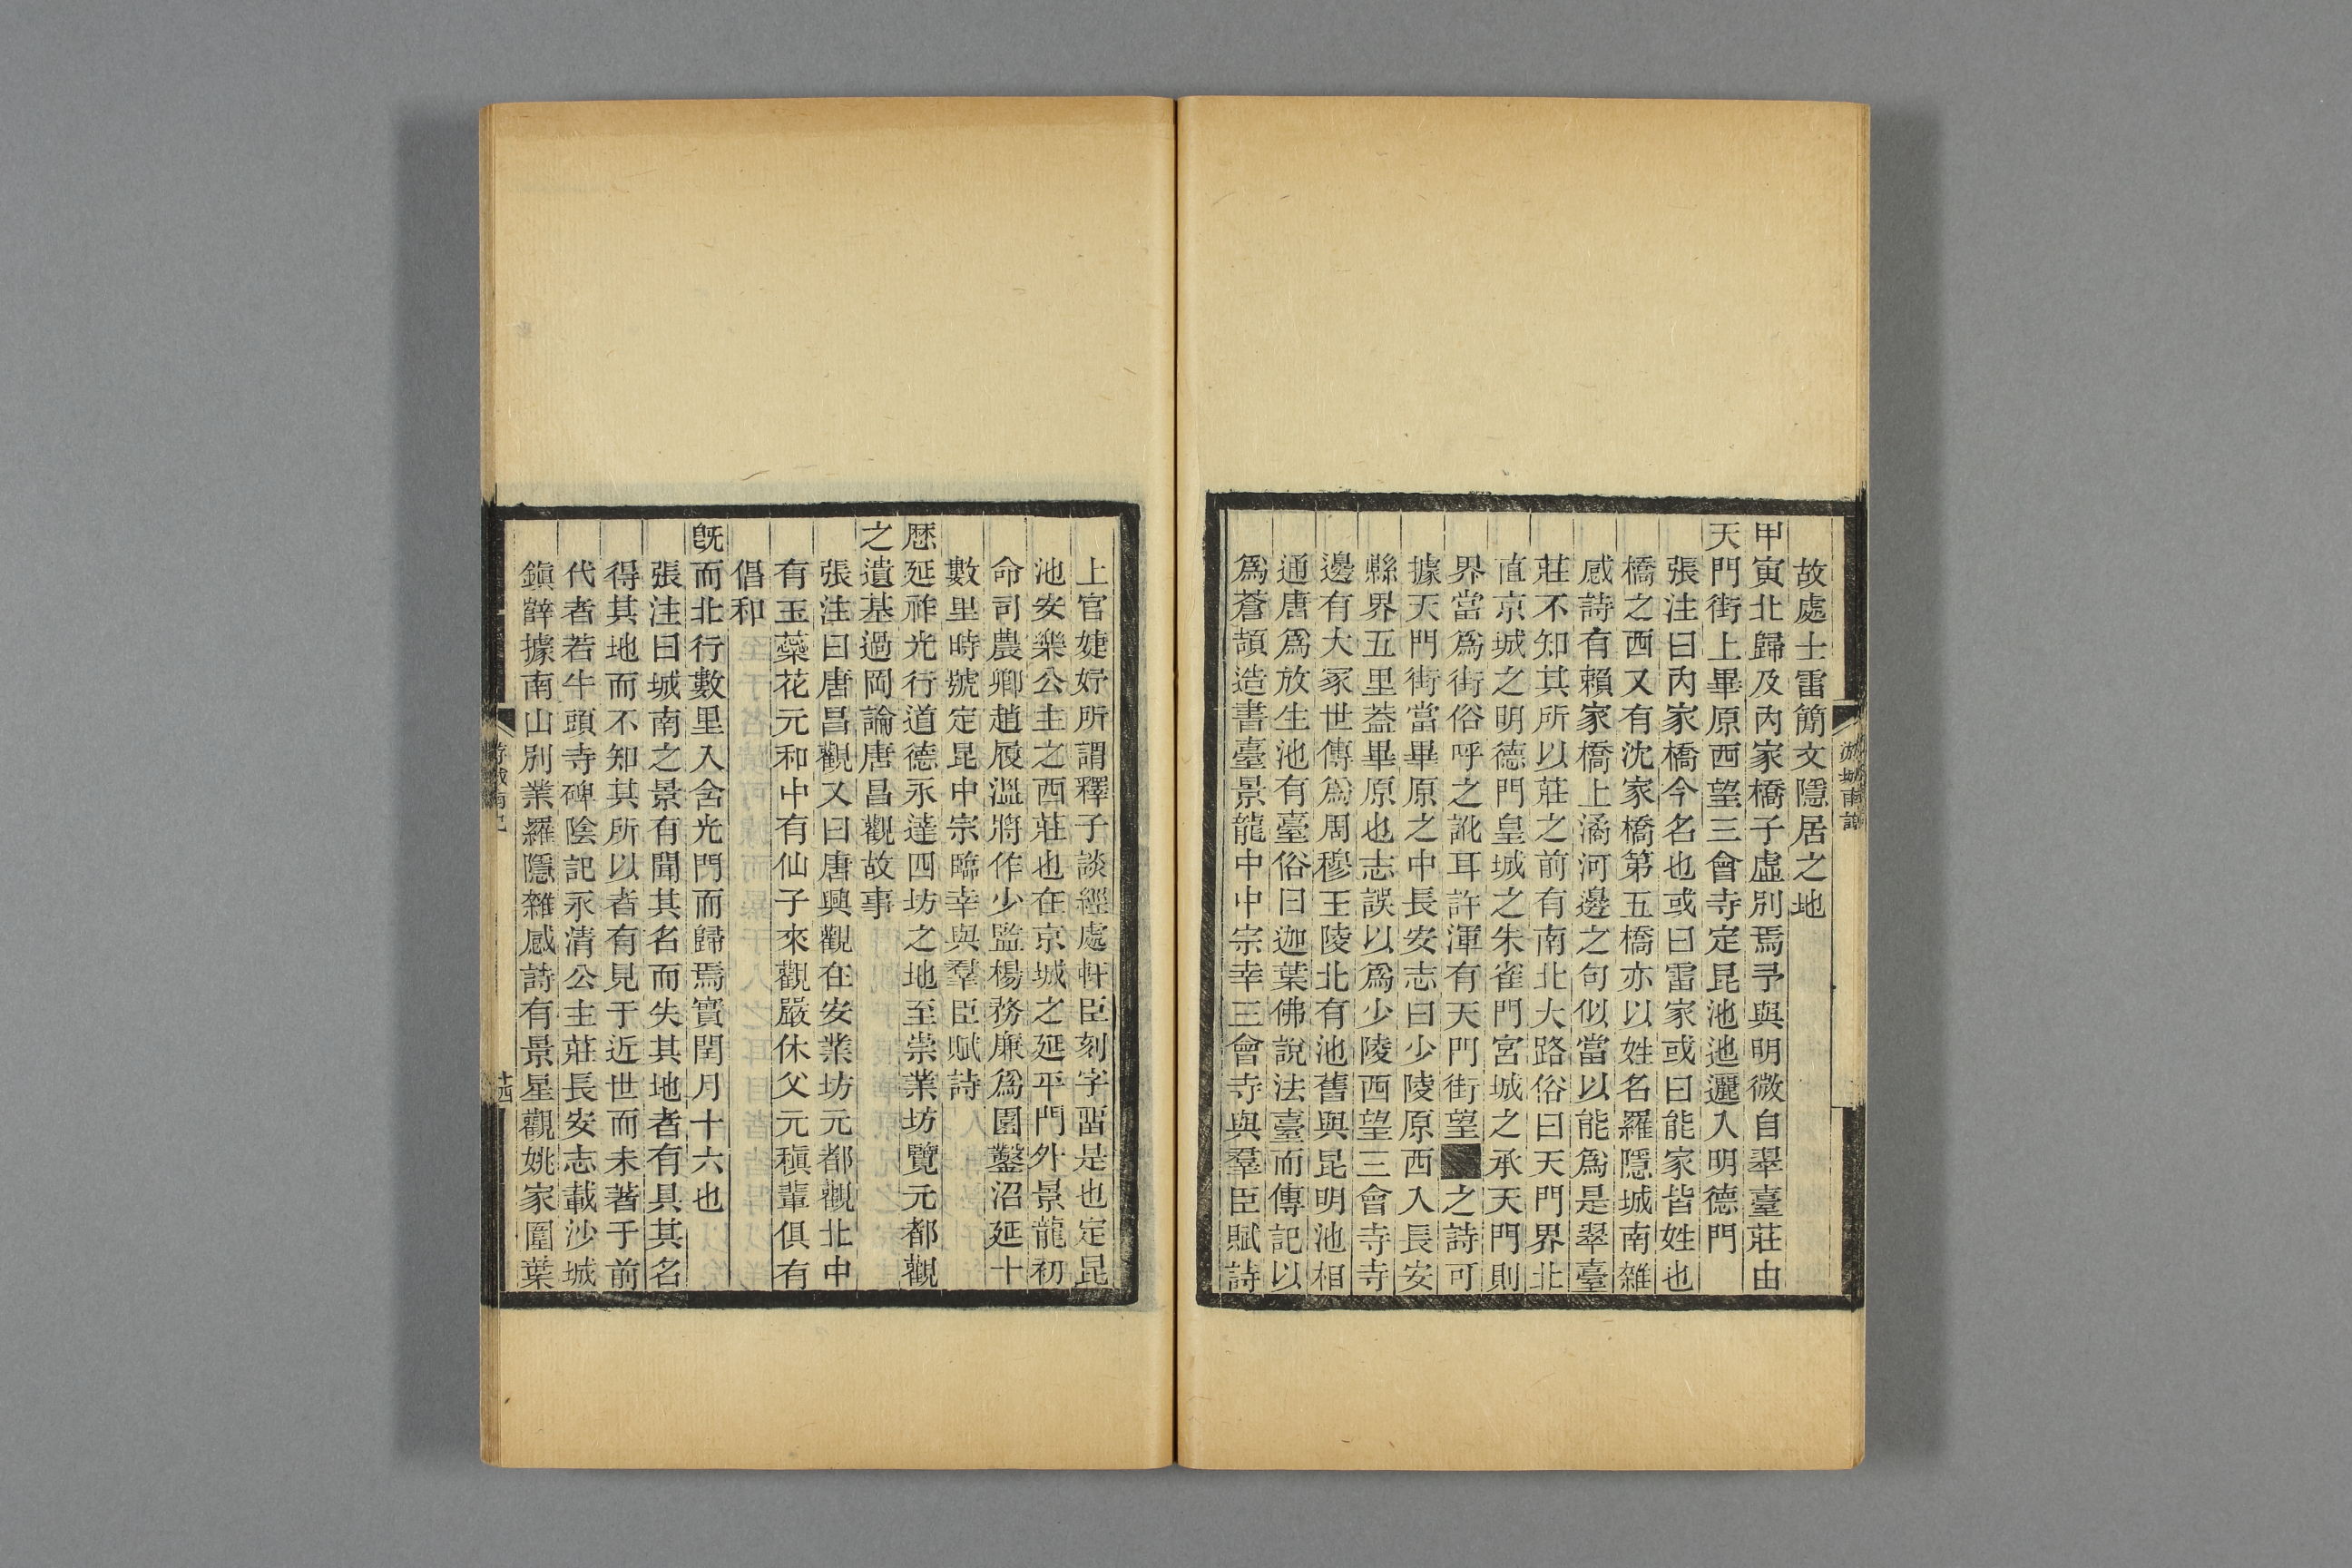 故處士雷簡文隱居之地
甲寅北歸及內家橋子虛別焉予與明微自翠臺莊由
天門街上畢原西望三會寺定昆池迤邐入明德門
張注曰內家橋今名也或曰雷家或曰能家皆姓也
橋之西又有沈家橋第五橋亦以姓名羅隱城南雜
感詩有賴家橋上潏河邊之句似當以能爲是翠臺
莊不知其所以莊之前有南北大路俗曰天門界北
直京城之明德門皇城之朱雀門宮城之承天門則
界當爲街俗呼之訛耳許渾有天門街望■之詩可
據天門街當畢原之中長安志曰少陵原西入長安
縣界五里葢畢原也志誤以爲少陵西望三會寺寺
邊有大冢世傳爲周穆王陵北有池舊與昆明池相
通唐爲放生池有臺俗曰迦葉佛說法臺而傳記以
爲蒼頡造書臺景龍中中宗幸三會寺與羣臣賦詩
上官婕妤所謂釋子談經處軒臣刻字畱是也定昆
池安樂公主之西莊也在京城之延平門外景龍初
命司農卿趙履溫將作少監楊務廉爲園鑿沼延十
數里時號定昆中宗臨幸與羣臣賦詩
歷延祚光行道德永達四坊之地至崇業坊覽元都觀
之遺基過岡論唐昌觀故事
張注曰唐昌觀又曰唐興觀在安業坊元都觀北中
有玉蘂花元和中有仙子來觀嚴休父元稹輩俱有
倡和
旣而北行數里入含光門而歸焉實閏月十六也
張注曰城南之景有聞其名而失其地者有具其名
得其地而不知其所以者有見于近世而未著于前
代者若牛頭寺碑陰記永清公主莊長安志載沙城
鎭薛據南山別業羅隱雜感詩有景星觀姚家園葉
游城南記
十四